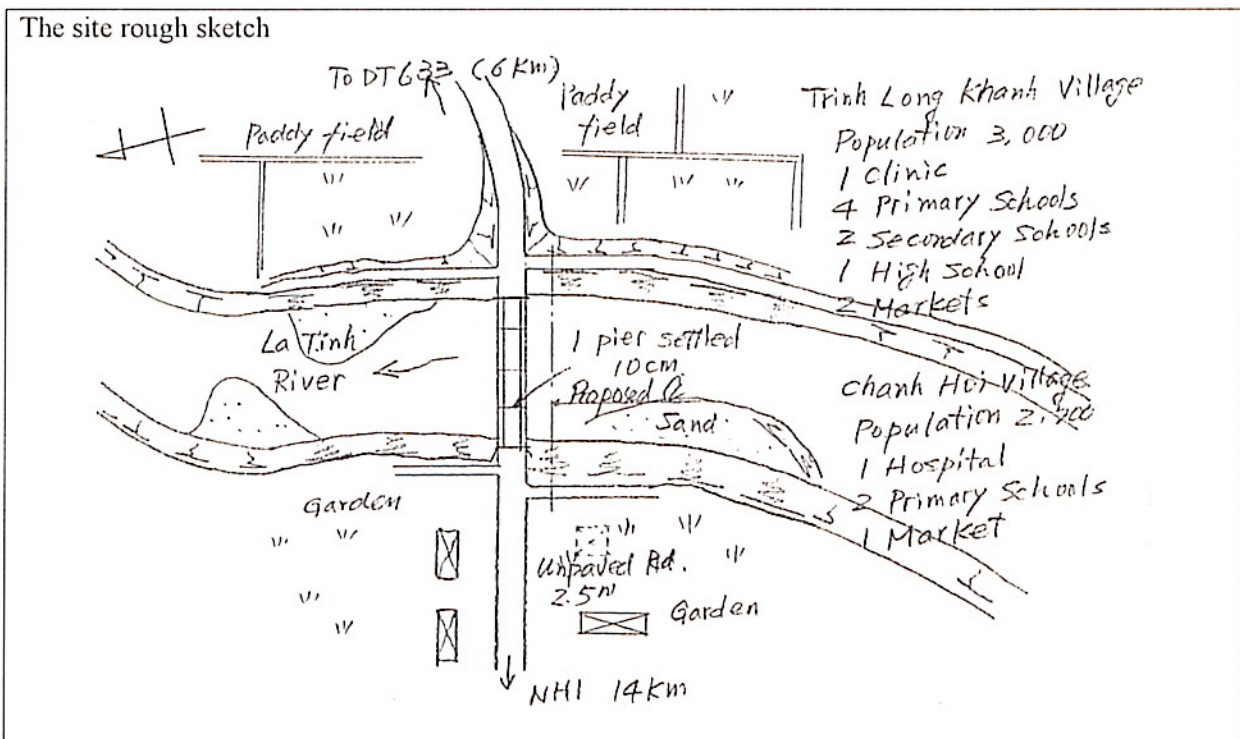 The site rough sketch
To DT 633 (6 Km)
Paddy field
Paddy
field
Trinh Long Khanh Village
Population 3,000
1 Clinic
4 Primary Schools
2 Secondary Schools
1 High School
2 Markets
La Tinh
River
1 pier settled
10cm
Proposed
Sand
Chanh Hui Village
Population
1 Hospital
2 Primary Schools
1 Market
Garden
Unpaved Rd.
2.5m
Garden
NH1 14Km